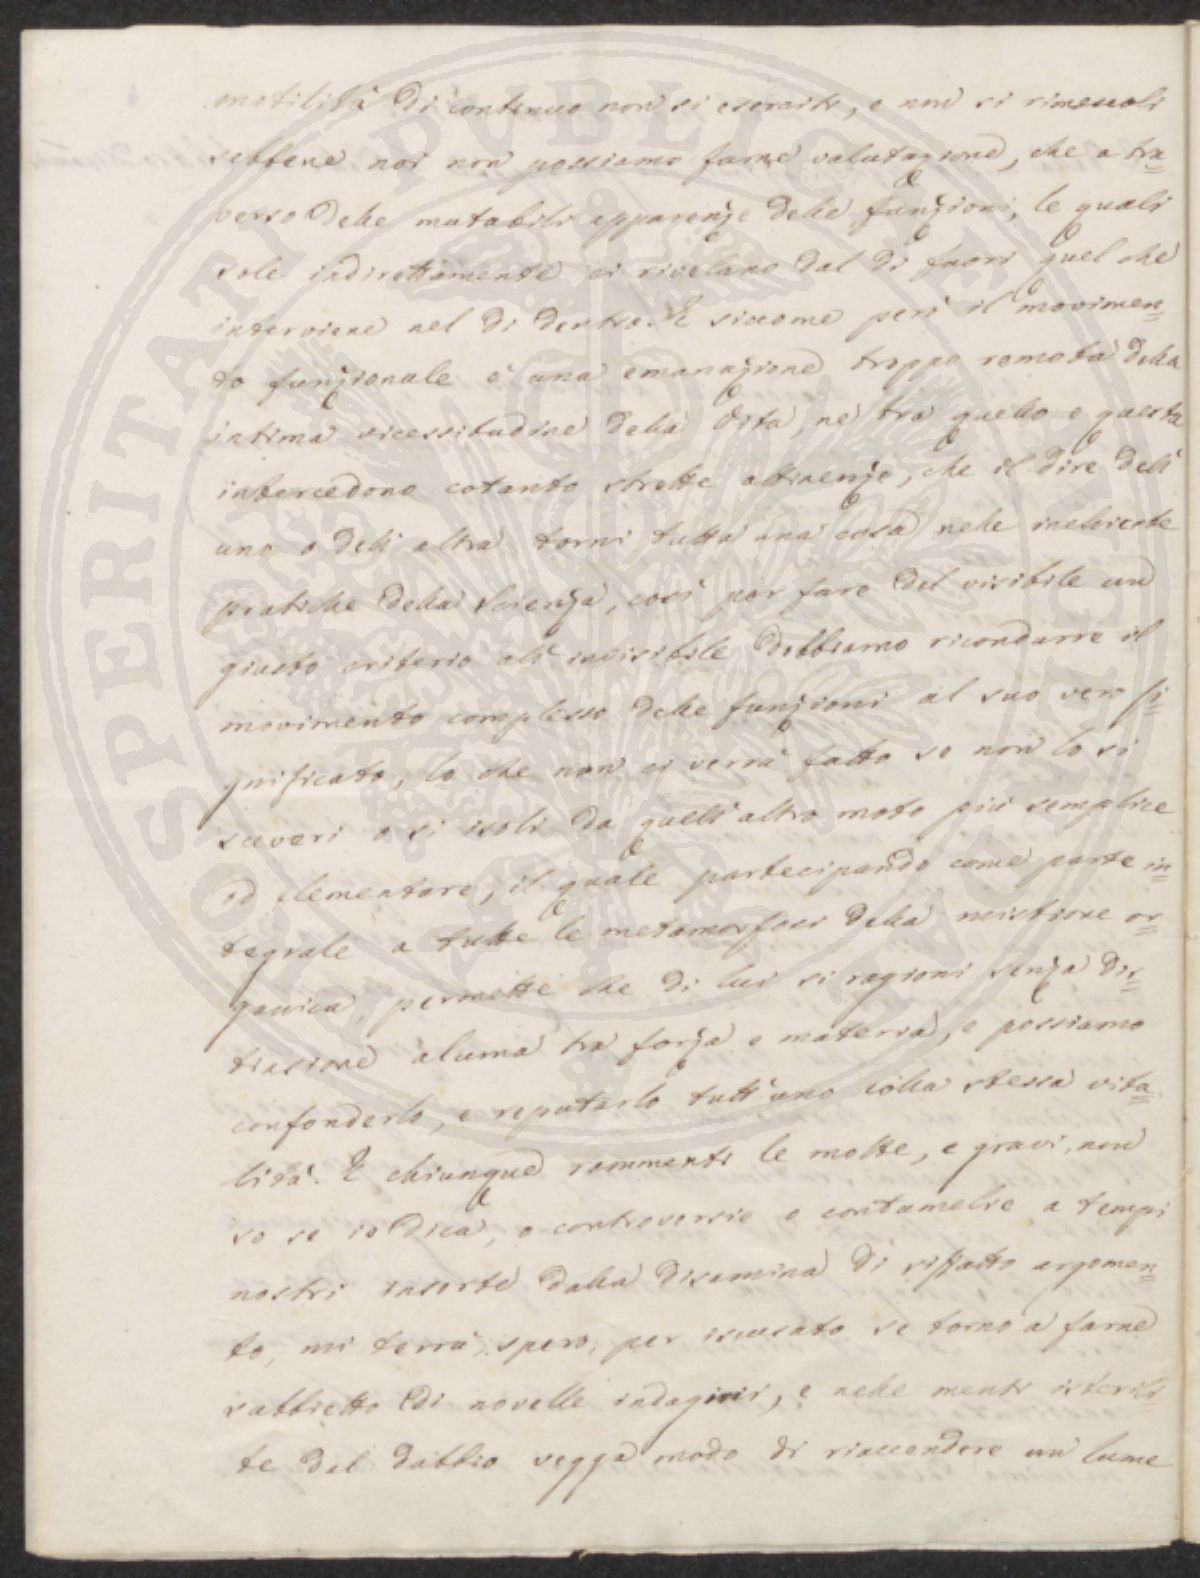 motilità di continuo non si eserciti, e non si rimescoli
sebbene noi non possiamo farne valutazione, che a tra=
verso delle mutabili apparenze delle funzioni, le quali
sole indirettamente ci rivelano dal di fuori quel che
interviene nel di dentro. E siccome però il movimen=
to funzionale è una emanazione troppo remota della
intima vicessitudine della Vita, nè tra quello e questa
intercedono cotanto strette attinenze, che il dire dell'
uno o dell'altra torni tutta una cosa nelle
pratiche della Scienza, così per fare del visibile un
giusto criterio all'invisibile dobbiamo ricondurre il
movimento complesso delle funzioni al suo vero si=
gnificato, lo che non ci verrà fatto se non lo si
sceveri o si isoli da quell'altro moto più semplice
ed elementare, il quale partecipando come parte in=
tegrale a tutte le metamorfosi della mistione or=
ganica, permette che di lui si ragioni senza dis=
trasione alcuna tra forza e materia, e possiamo
confonderlo, e reputarlo tutt'uno colla stessa vita=
lità. E chiunque rammenti le molte, e gravi, non
so se io dica, o controversie o contumelie a tempi
nostri insorte dalla disamina di siffatto argomen=
to, mi terrà, spero, per iscusato se torno a farne
subbietto di novelle indagini, e nelle menti isterili=
te del dubbio vegga modo di riaccendere un lume
SOSPERITATI PVBLICAE AVGENDAE